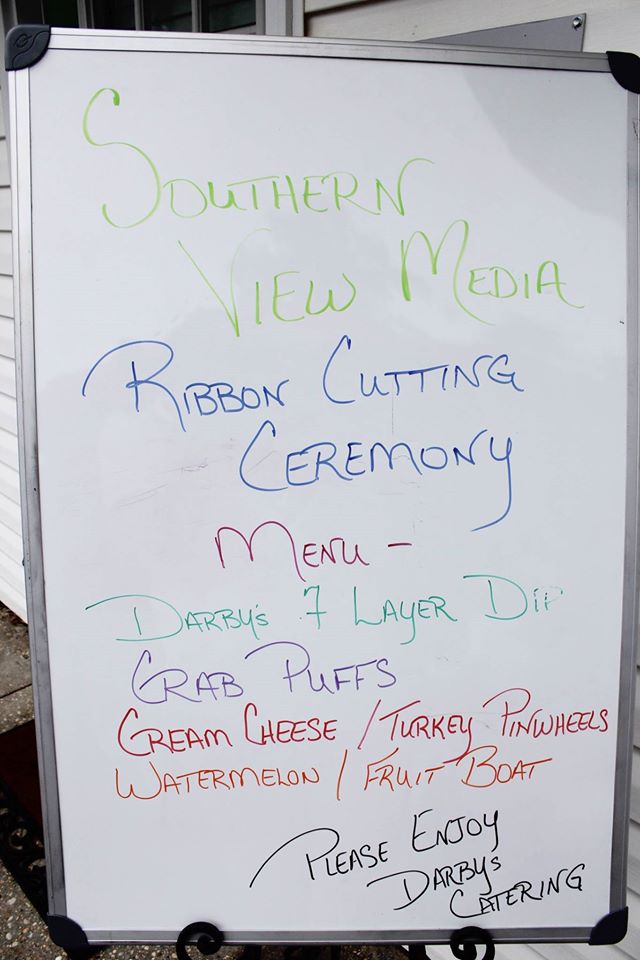 SOUTHERN
VIEW MEDIA
RIBBON CUTTING
CEREMONY
MENU -
DARBY'S 7 LAYER DIP
CRAB PUFFS
CREAM CHEESE / TURKEY PINWHEELS
WATERMELON / FRUIT BOAT
PLEASE ENJOY
DARBY'S
CATERING